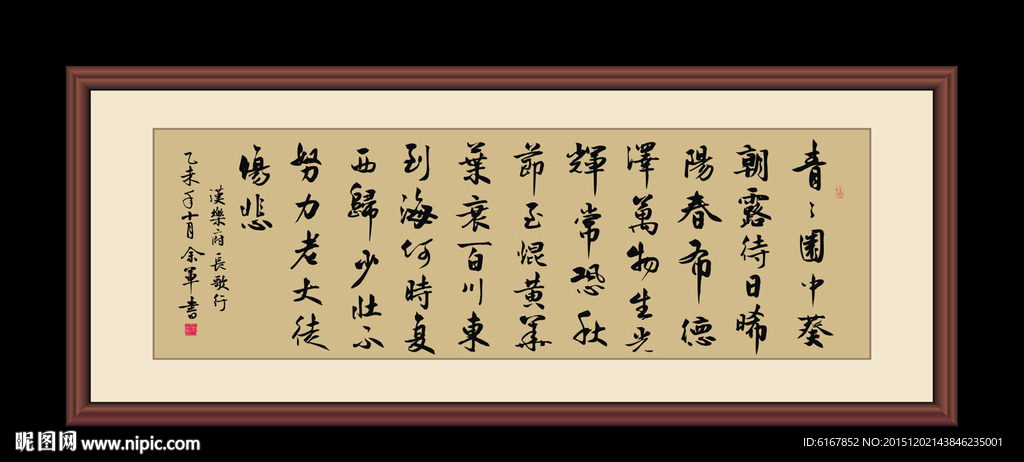 青〻園中葵
朝露待日晞
陽春布德
澤萬物生光
輝常恐秋
節至焜黄華
葉衰百川東
到海何時复
西歸少壯不
努力老大徒
傷悲
漢樂府長歌行
乙未年十月余軍書
昵图网 www.nipic.com
ID:6167852 NO:20151202143846235001